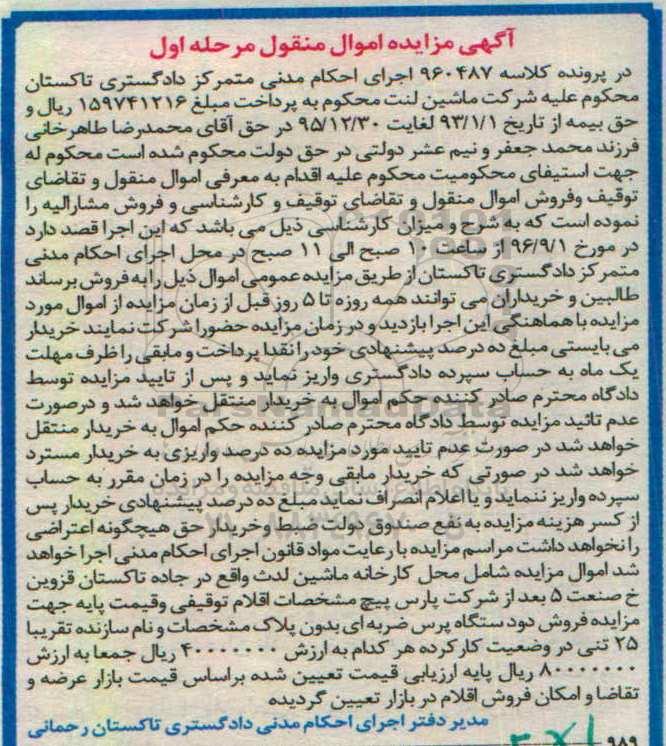 آگهی مزایده اموال منقول مرحله اول
در پرونده کلاسه ۹۶۰۴۸۷ اجرای احکام مدنی متمرکز دادگستری تاکستان
محکوم علیه شرکت ماشین لنت محکوم به پرداخت مبلغ ۱۵۹۷۴۱۲۱۶ ریال و
حق بیمه از تاریخ ۹۳/۱/۱ لغایت ۹۵/۱۲/۳۰ در حق آقای محمدرضا طاهرخانی
فرزند محمد جعفر و نیم عشر دولتی در حق دولت محکوم شده است محکوم له
جهت استیفای محکومیت محکوم علیه اقدام به معرفی اموال منقول و تقاضای
توقیف وفروش اموال منقول و تقاضای توقیف و کارشناسی و فروش مشارالیه را
نموده است که به شرح و میزان کارشناسی ذیل می باشد که این اجرا قصد دارد
در مورخ ۹۶/۹/۱ از ساعت ۱۰ صبح الی ۱۱ صبح در محل اجرای احکام مدنی
متمرکز دادگستری تاکستان از طریق مزایده عمومی اموال ذیل را به فروش برساند
طالبین و خریداران می توانند همه روزه تا ۵ روز قبل از زمان مزایده از اموال مورد
مزایده با هماهنگی این اجرا بازدید و در زمان مزایده حضورا شرکت نمایند خریدار
می بایستی مبلغ ده درصد پیشنهادی خود را نقدا پرداخت و مابقی را ظرف مهلت
یک ماه به حساب سپرده دادگستری واریز نماید و پس از تایید مزایده توسط
دادگاه محترم صادر کننده حکم اموال به خریدار منتقل خواهد شد و درصورت
عدم تائید مزایده توسط دادگاه محترم صادر کننده حکم اموال به خریدار منتقل
خواهد شد در صورت عدم تایید مورد مزایده ده درصد واریزی به خریدار مسترد
خواهد شد در صورتی که خریدار مابقی وجه مزایده را در زمان مقرر به حساب
سپرده واریز ننماید و یا اعلام انصراف نماید مبلغ ده درصد پیشنهادی خریدار پس
از کسر هزینه مزایده به نفع صندوق دولت ضبط وخریدار حق هیچگونه اعتراضی
را نخواهد داشت مراسم مزایده با رعایت مواد قانون اجرای احکام مدنی اجرا خواهد
شد اموال مزایده شامل محل کارخانه ماشین لدث واقع در جاده تاکستان قزوین
خ صنعت ۵ بعد از شرکت پارس پیچ مشخصات اقلام توقیفی وقیمت پایه جهت
مزایده فروش دود ستگاه پرس ضربه ای بدون پلاک مشخصات و نام سازنده تقریبا
۲۵ تنی در وضعیت کارکرده هر کدام به ارزش ۴۰۰۰۰۰۰۰ ریال جمعا به ارزش
۸۰۰۰۰۰۰۰ ریال پایه ارزیابی قیمت تعیین شده براساس قیمت بازار عرضه و
تقاضا و امکان فروش اقلام در بازار تعیین گردیده
مدیر دفتر اجرای احکام مدنی دادگستری تاکستان رحمانی
۹۸۹